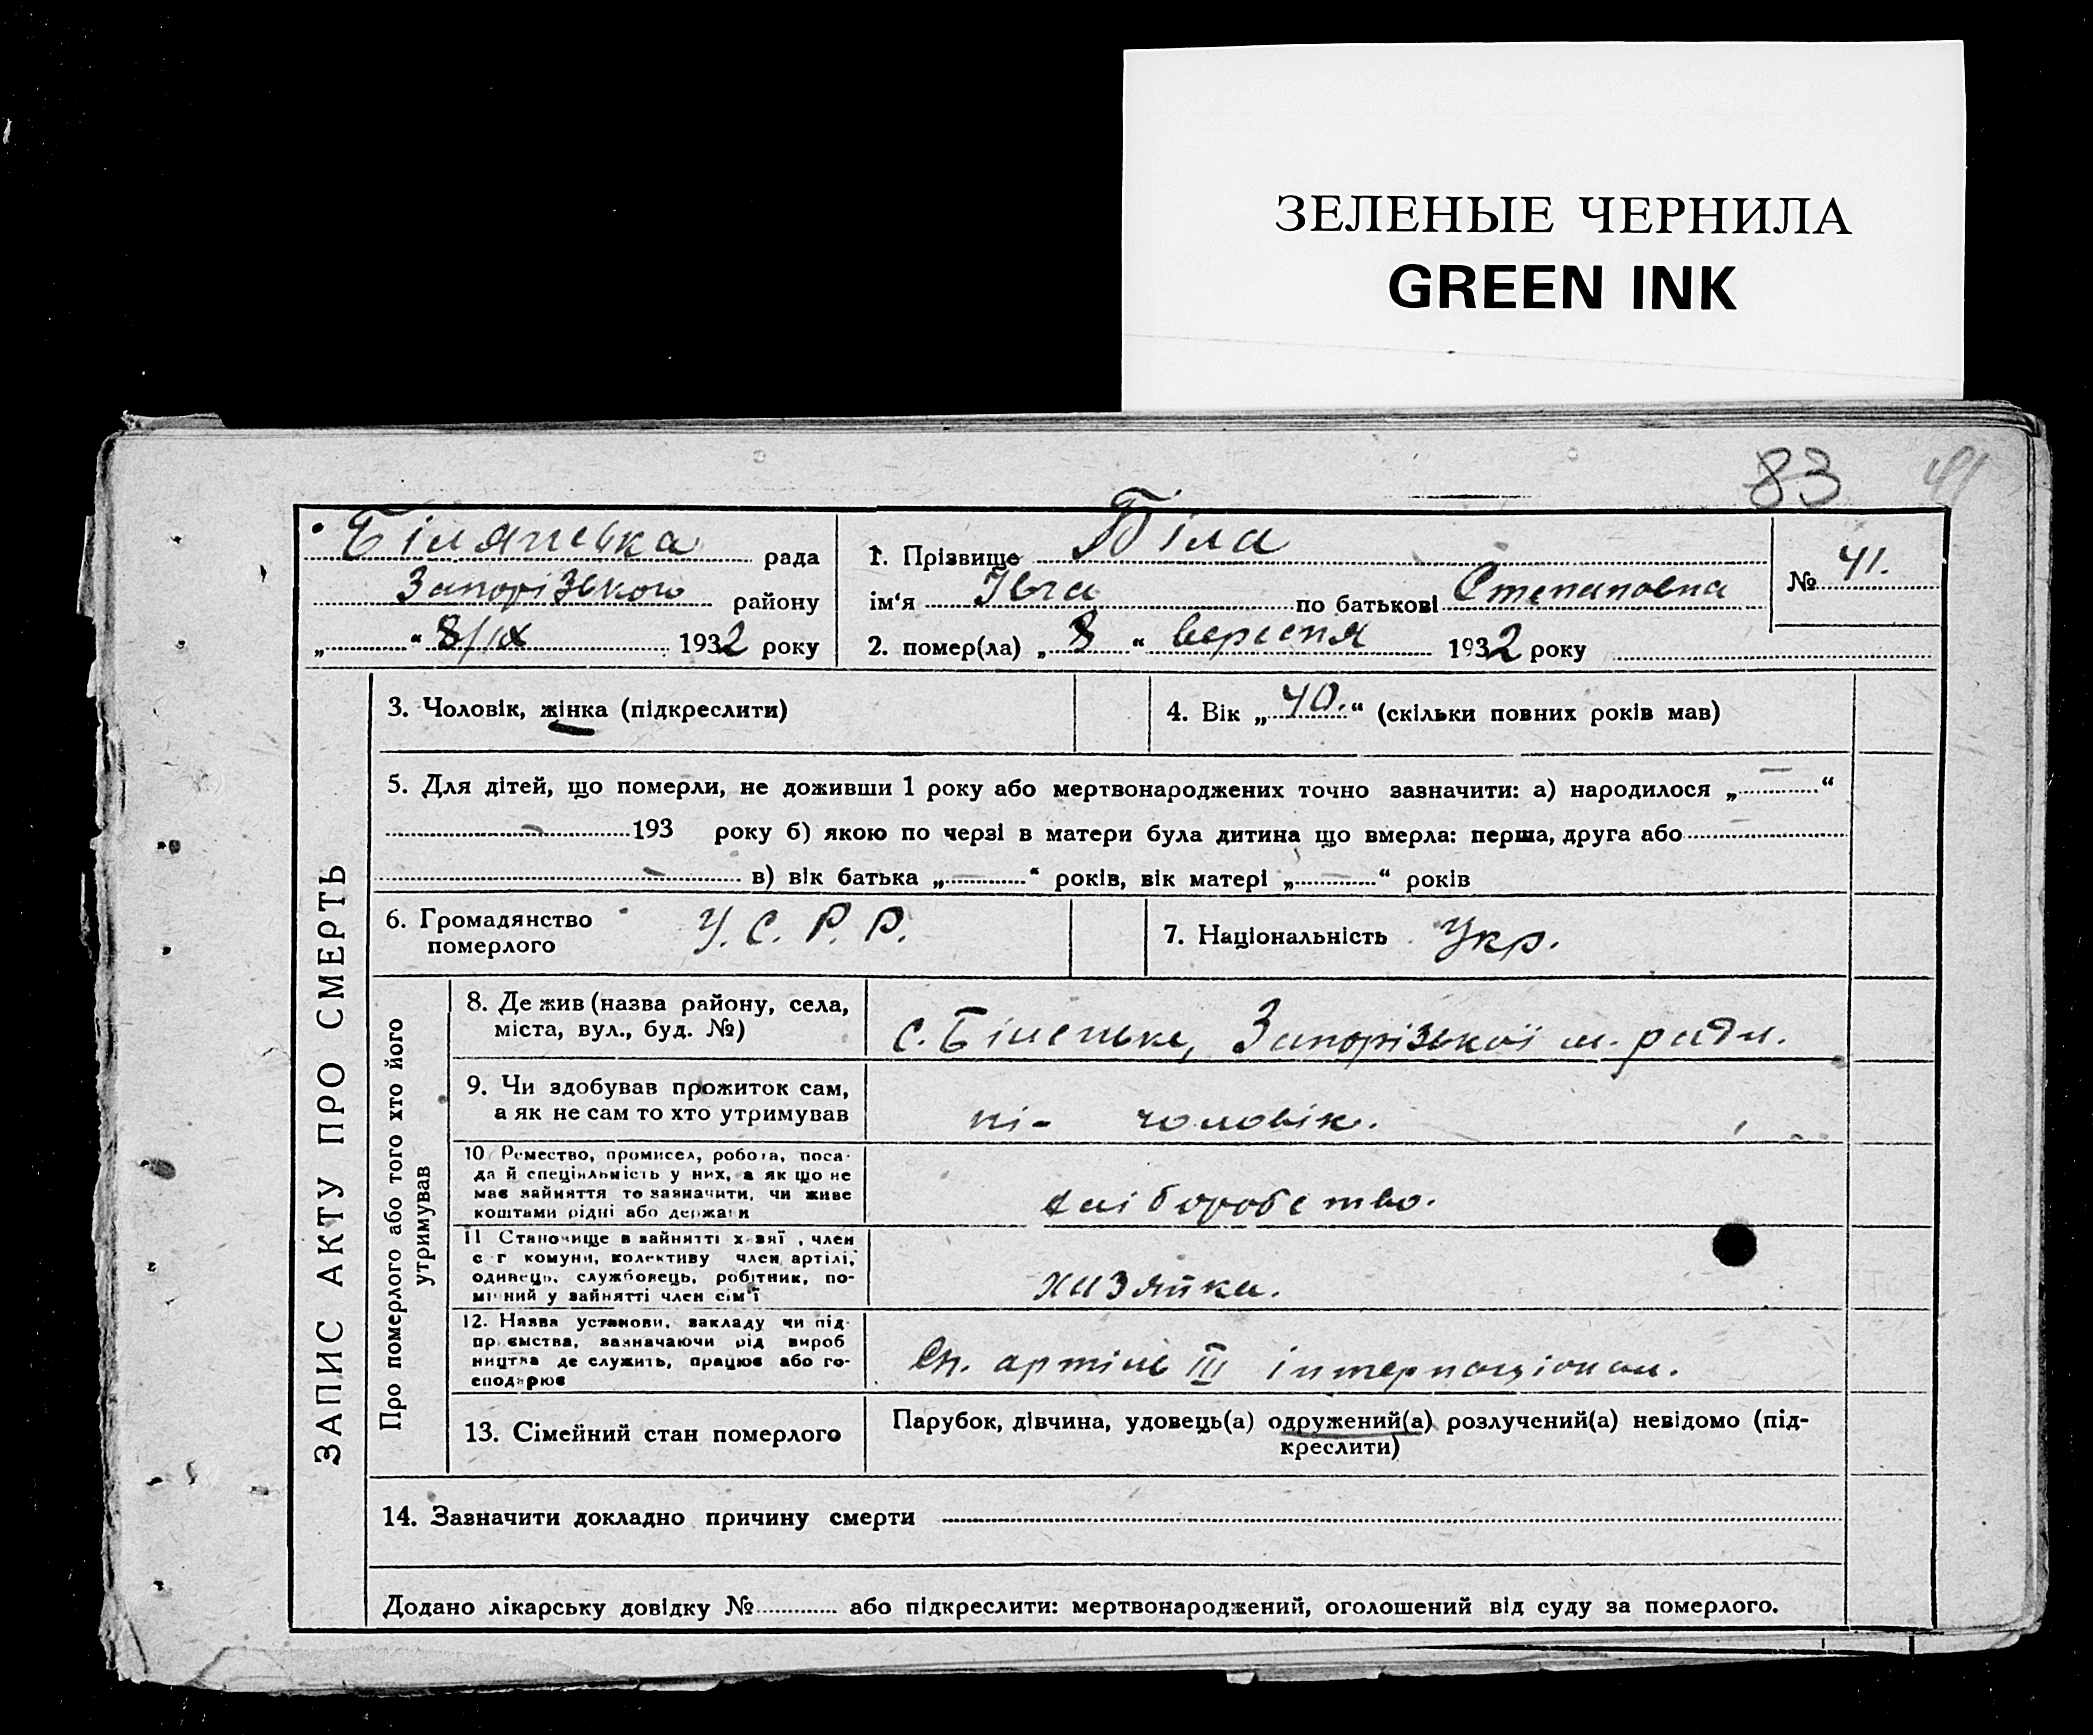 ЗЕЛЕНЫЕ ЧЕРНИЛА
GREEN INK
83 41
Білянська рада
Запорізького району
„ “ 8/IX 1932 року
1. Прізвище Біла
ім‘я Івга по батькові Степановна
№ 41.
2. помер(ла) „ 8 “ вересня 1932 року
ЗАПИС АКТУ ПРО СМЕРТЬ
3. Чоловік, жінка (підкреслити)
4. Вік „ 40. “ (скільки повних років мав)
5. Для дітей, що померли, не доживши 1 року або мертвонароджених точно зазначити: а) народилося „ — “
— 193 року б) якою по черзі в матери була дитина що вмерла: перша, друга або —
— в) вік батька „ “ років, вік матері „ “ років
6. Громадянство
померлого
У. С. Р. Р.
7. Національність Укр.
Про померлого або того хто його
утримував
8. Де жив (назва району, села,
міста, вул., буд. №)
с. Біленьке, Запорізької м. ради.
9. Чи здобував прожиток сам,
а як не сам то хто утримував
ні - чоловік.
10 Ремество, промисел, робота, поса-
да й спеціяльність у них, а як що не
має зайняття то зазначити, чи живе
коштами рідні або держави
хліборобство.
11 Становище в зайнятті х-вяї , член
с г комуни, колективу член артілі,
одинець, службовець, робітник, по-
мічний у зайнятті член сім‘ї
хазяйка.
12. Назва установи, закладу чи під-
приємства, зазначаючи рід вироб
ництва де служить, працює або го-
сподарює
Сп. артіль III інтернаціонал.
13. Сімейний стан померлого
Парубок, дівчина, удовець(а) одружений(а) розлучений(а) невідомо (під-
креслити)
14. Зазначити докладно причину смерти
Додано лікарську довідку № або підкреслити: мертвонароджений, оголошений від суду за померлого.